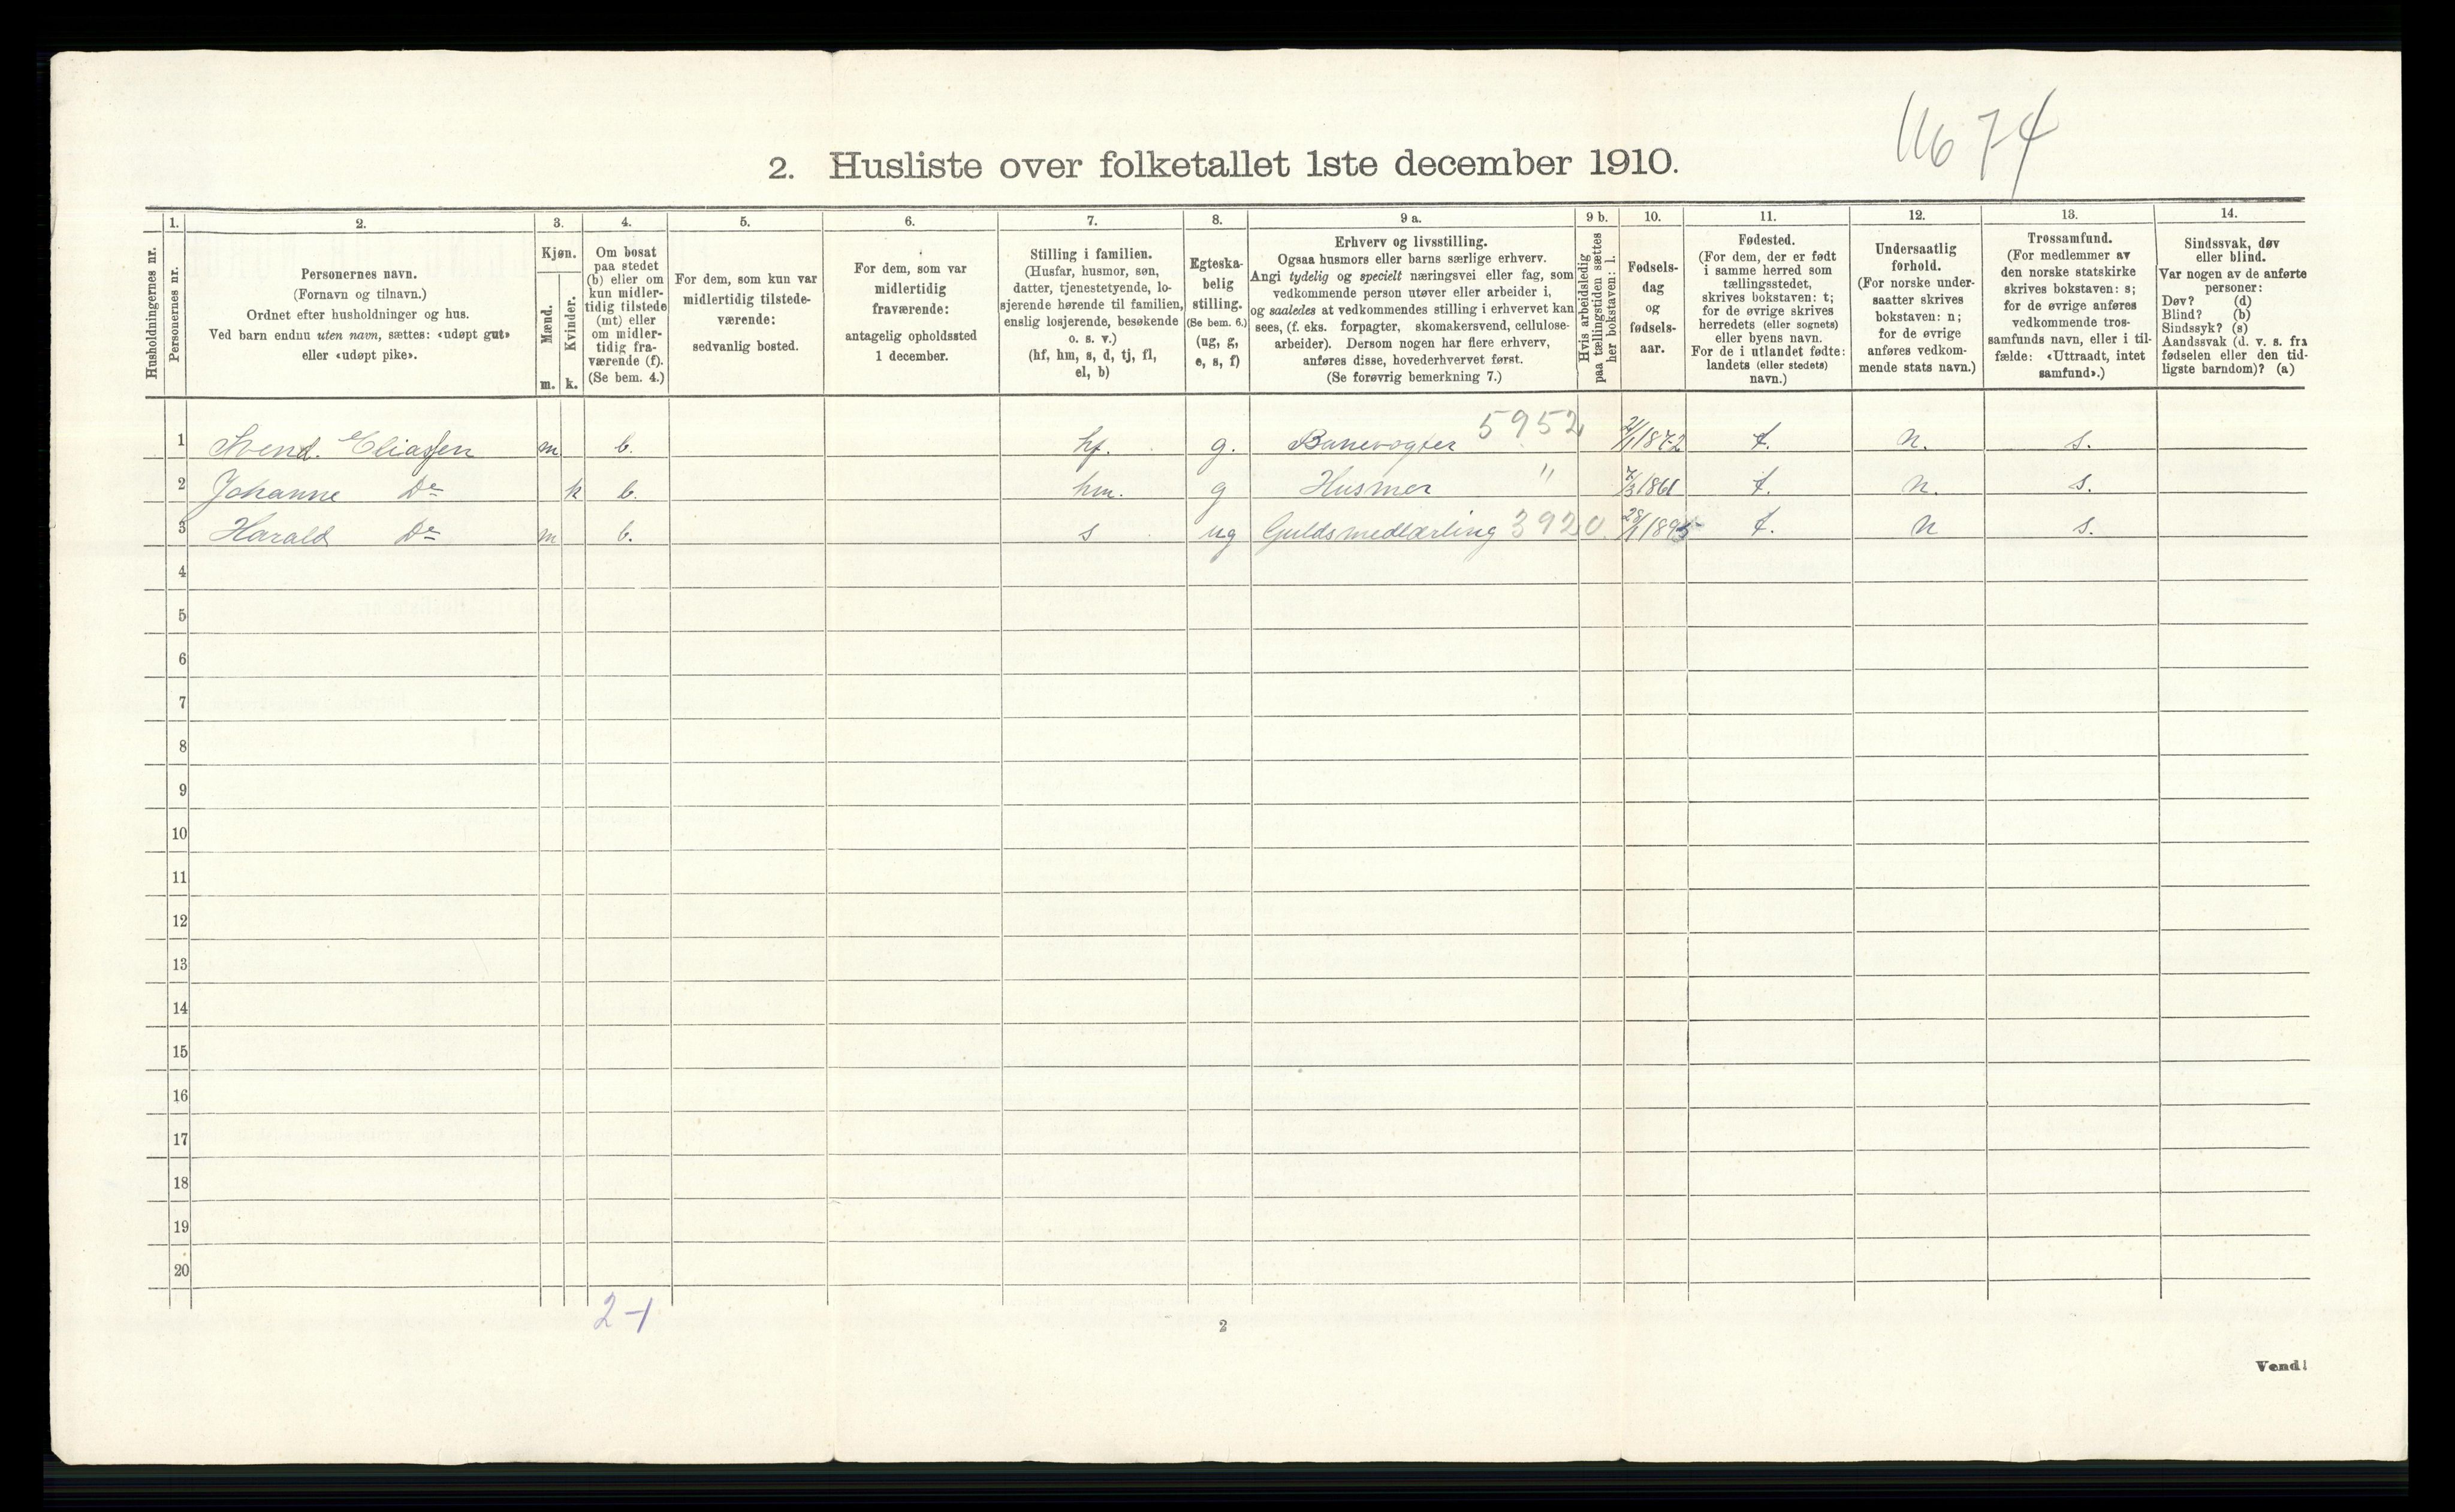 11674
2. Husliste over folketallet 1ste december 1910.
Husholdningernes nr.
1.
Personernes nr.
2.
Personernes navn.
(Fornavn og tilnavn.)
Ordnet efter husholdninger og hus.
Ved barn endnu uten navn, sættes: «udøpt gut»
eller «udøpt pike».
3.
Kjøn.
Mænd.
Kvinder.
m. k.
4.
Om bosat
paa stedet
(b) eller om
kun midler-
tidig tilstede
(mt) eller
om midler-
tidig fra-
værende (f).
(Se bem. 4.)
5.
For dem, som kun var
midlertidig tilstede-
værende:
sedvanlig bosted.
6.
For dem, som var
midlertidig
fraværende:
antagelig opholdssted
1 december.
7.
Stilling i familien.
(Husfar, husmor, søn,
datter, tjenestetyende, lo-
sjerende hørende til familien,
enslig losjerende, besøkende
o. s. v.)
(hf, hm, s, d, tj, fl,
el, b)
8.
Egteska-
belig
stilling.
(Se bem. 6.)
(ug, g,
e, s, f)
9 a.
Erhverv og livsstilling.
Ogsaa husmors eller barns særlige erhverv.
Angi tydelig og specielt næringsvei eller fag, som
vedkommende person utøver eller arbeider i,
og saaledes at vedkommendes stilling i erhvervet kan
sees, (f. eks. forpagter, skomakersvend, cellulose-
arbeider). Dersom nogen har flere erhverv,
anføres disse, hovederhvervet først.
(Se forøvrig bemerkning 7.)
9 b.
Hvis arbeidsledig
paa tællingstiden sættes
her bokstaven: l.
10.
Fødsels-
dag
og
fødsels-
aar.
11.
Fødested.
(For dem, der er født
i samme herred som
tællingsstedet,
skrives bokstaven: t;
for de øvrige skrives
herredets (eller sognets)
eller byens navn.
For de i utlandet fødte:
landets (eller stedets)
navn.)
12.
Undersaatlig
forhold.
(For norske under-
saatter skrives
bokstaven: n;
for de øvrige
anføres vedkom-
mende stats navn.)
13.
Trossamfund.
(For medlemmer av
den norske statskirke
skrives bokstaven: s;
for de øvrige anføres
vedkommende tros-
samfunds navn, eller i til-
fælde: «Uttraadt, intet
samfund».)
14.
Sindssvak, døv
eller blind.
Var nogen av de anførte
personer:
Døv? (d)
Blind? (b)
Sindssyk? (s)
Aandssvak (d. v. s. fra
fødselen eller den tid-
ligste barndom)? (a)
1 Svend. Eliassen m b. hf. g. Banevogter 5952 1872 t. n. s.
2 Johanne Do k b. hm. g Husmor " 7/3 1861 t. n. s.
3 Harald Do m b. s ug Guldsmedlærling 3920. 28/1 1895 t. n s.
4
5
6
7
8
9
10
11
12
13
14
15
16
17
18
19
20
2-1
2
Vend!